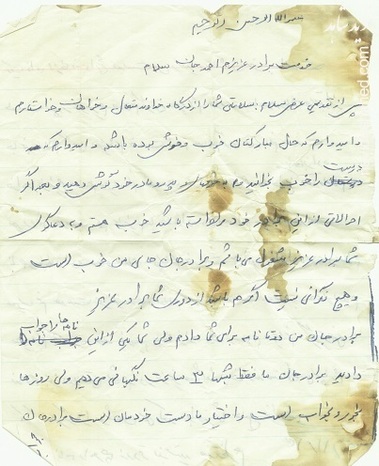 بسم الله الرحمن الرحیم
خدمت برادر عزیزم احمد جان سلام
پس از تقدیم عرض سلام سلامتی شما را از درگاه خداوند متعال خواهان و خواستارم
و امیدوارم که حال مبارکتان خوب و خوش بوده باشد و امیدوارم که
درست
را خوب بخوانید و به حرف پدر و مادر خود گوش دهید و بعد اگر
احوالاتی از این برادر خود خواسته باشید خوب هستم و به دعاگوی
شما برادر عزیز مشغول می باشم و برادر جان جای من خوب است
و هیچ نگرانی نیست اگر هم باشد از دوری شما برادر عزیز
نامه ها را جواب
برادر جان من دفعه نامه برای شما دادم ولی شما یکی از این
ندادید برادر جان ما فقط شبها ۳ ساعت نگهبانی می دهیم ولی روزها
بخور و بخواب است و اختیار ما دست خودمان است برادر جان